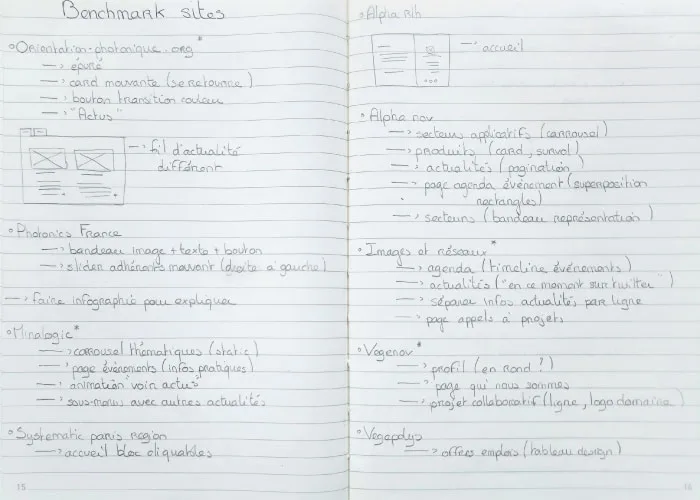 Benchmark sites
° Orientation-photonique.org *
—> épuré
—> card mouvante (se retourne)
—> bouton transition couleur
—> "Actus"
—> fil d'actualité
différent
° Photonics France
—> bandeau image + texte + bouton
—> slider adhérents mouvant (droite à gauche)
—> faire infographie pour expliquer
° Minalogic *
—> carrousel thématiques (static)
—> page évènements (infos pratiques)
—> animation "voir actus"
—> sous-menus avec autres actualités
° Systematic paris region
—> accueil bloc cliquables
15
° Alpha rlh
—> accueil
° Alpha nov
—> secteurs applicatifs (carrousel)
—> produits (card, survol)
—> actualités (pagination)
—> page agenda évènement (superposition
rectangles)
—> secteurs (bandeau représentation)
° Images et réseaux *
—> agenda (timeline événements)
—> actualités ("en ce moment sur twitter")
—> séparer infos actualités par ligne
—> page appels à projets
° Vegenov *
—> profil (en rond !)
—> page qui nous sommes
—> projet collaboratif (ligne, logo domaine)
° Vegepolys
—> offres emplois (tableau design)
16